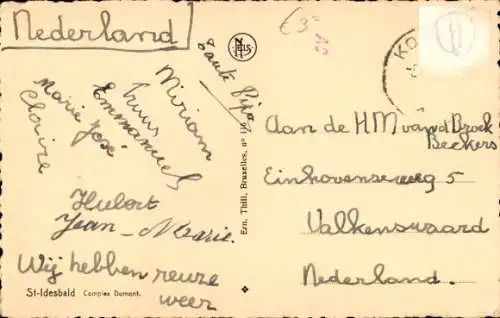 Nederland
Tante Pipa
Miriam
Truus
Emmanuel
Marie José
Claire
Hubert
Jean-Marie.
Wij hebben reuze
weer
St-Idesbald Complex Dumont.
NELS
Ern. Thill, Bruxelles, n°
KO
Aan de H M van d Broek
Beckers
Einhovenseweg 5
Valkenswaard
Nederland.